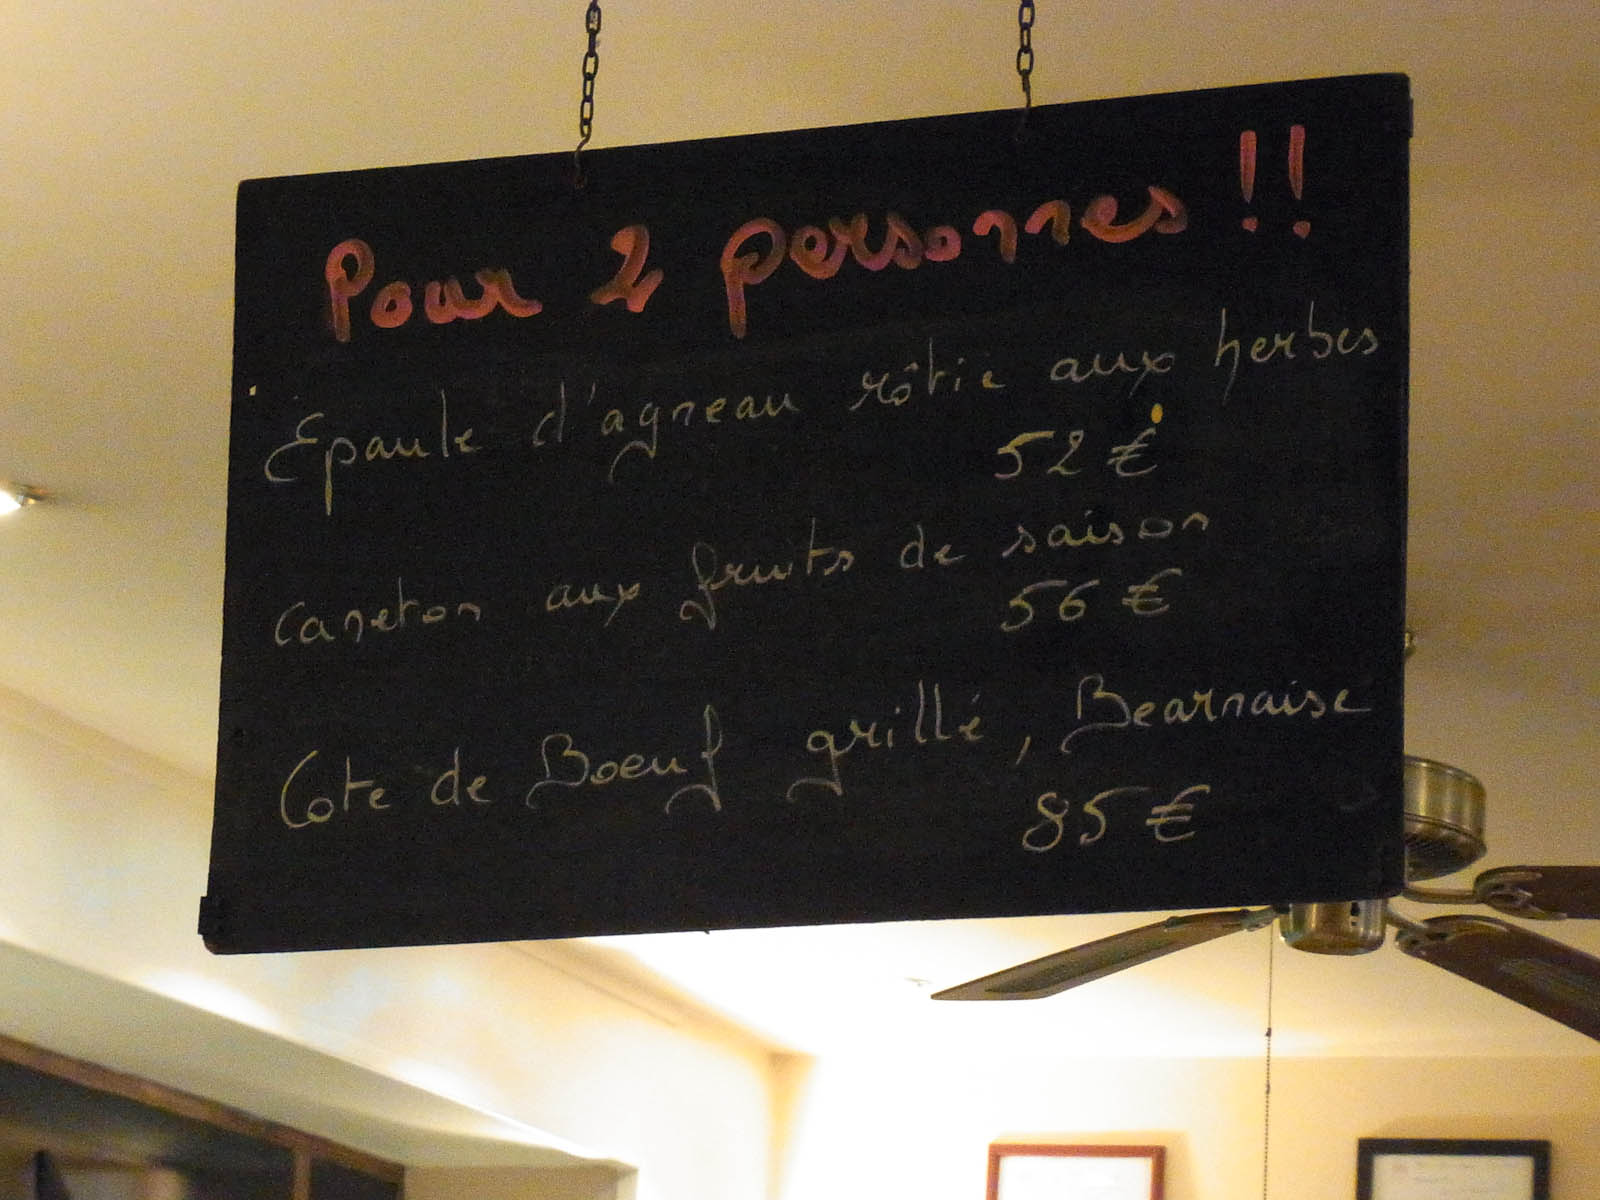 Pour 2 personnes !!
Epaule d'agneau rôtie aux herbes
52 €
Caneton aux fruits de saison
56 €
Cote de Boeuf grillé, Bearnaise
85 €